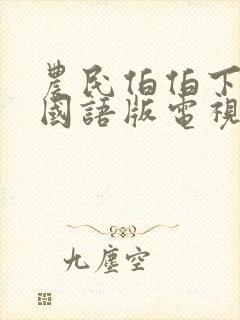 農民伯伯下
國語版電視
九塵空